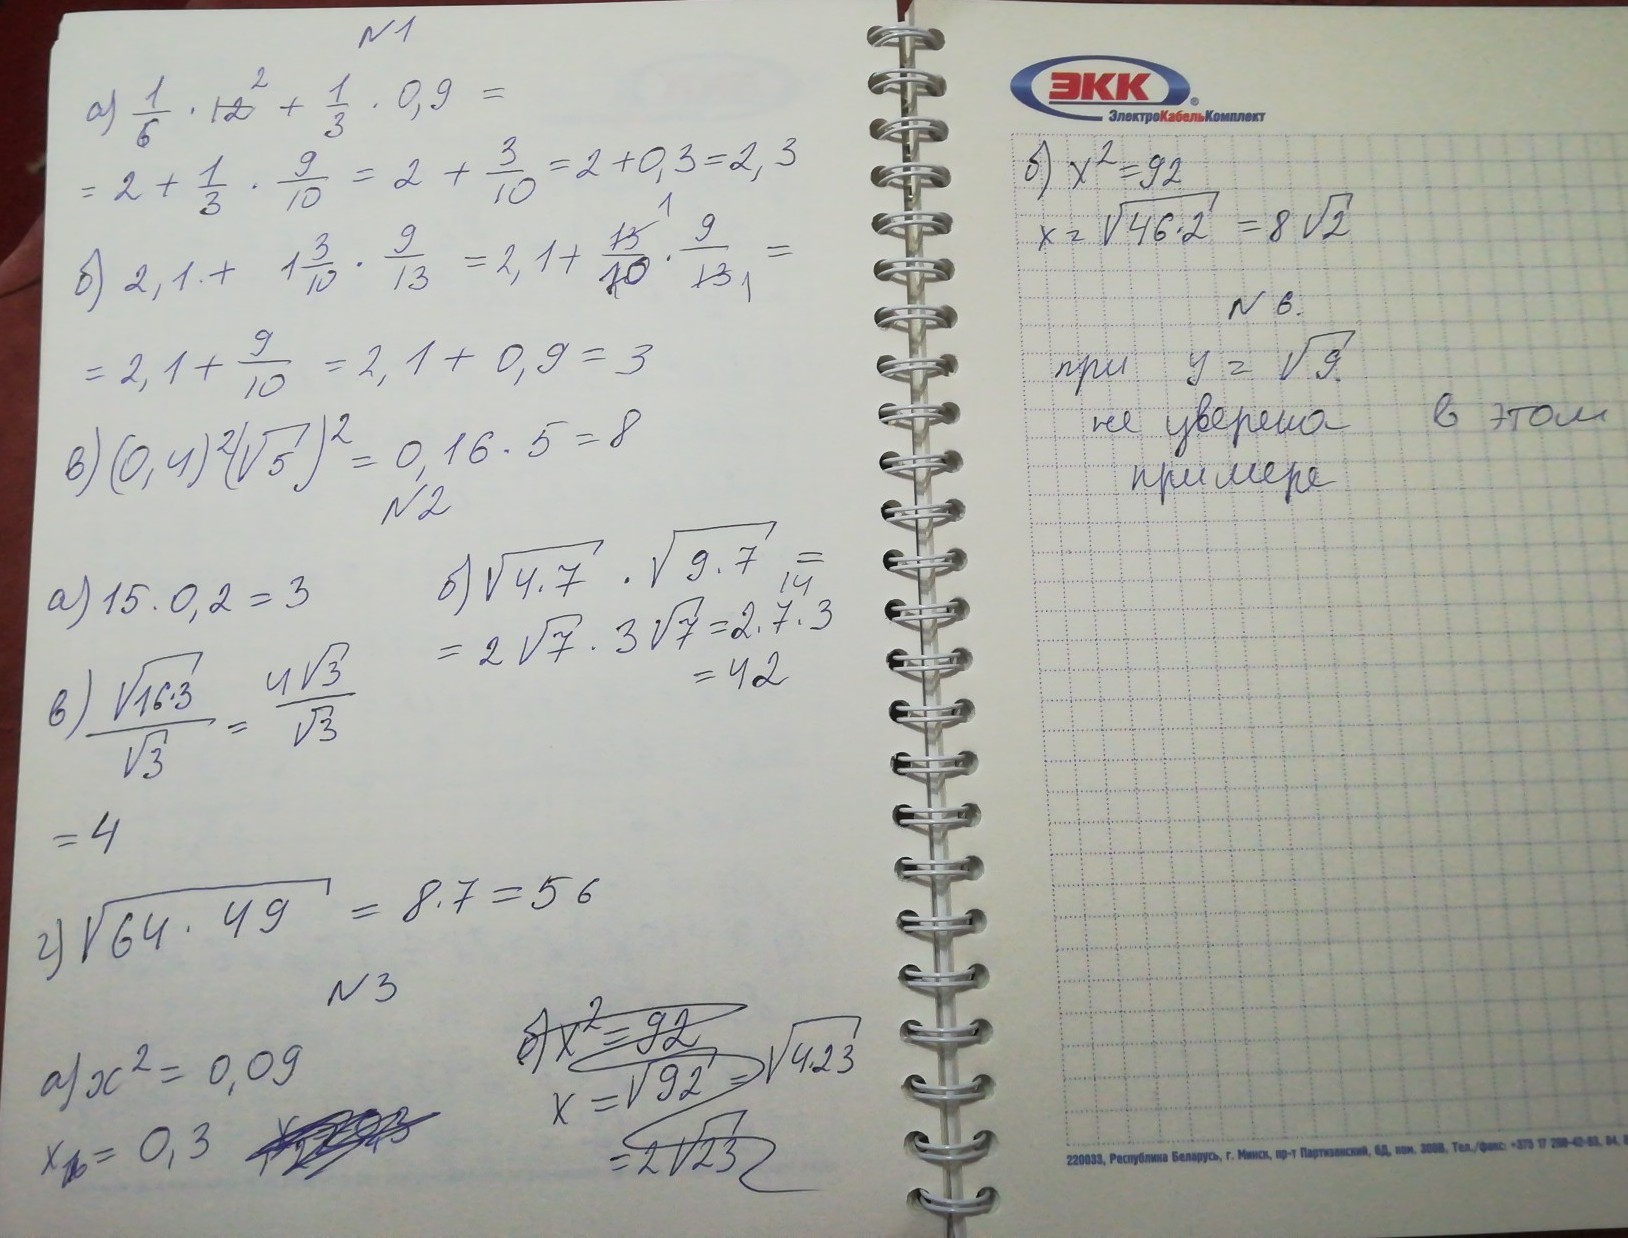 N1
а) 1/6 · 12² + 1/3 · 0,9 =
= 2 + 1/3 · 9/10 = 2 + 3/10 = 2 + 0,3 = 2,3
б) 2,1 + 1 3/10 · 9/13 = 2,1 + 13/10 · 9/13 =
= 2,1 + 9/10 = 2,1 + 0,9 = 3
в) (0,4)²(√5)² = 0,16 · 5 = 8
N2
а) 15 · 0,2 = 3
б) √4·7 · √9·7 =
14
= 2√7 · 3√7 = 2·7·3
= 42
в) √16·3/√3 = 4√3/√3
= 4
г) √64 · 49 = 8·7 = 56
N3
а) x² = 0,09
x = 0,3
б) x² = 92
x = √92 = √4·23
= 2√23
ЭКК
®
ЭлектроКабельКомплект
б) x² = 92
x = √46·2 = 8√2
N 6.
при y = √9.
не уверена в этом
примере
220033, Республика Беларусь, г. Минск, пр-т Партизанский, 6Д, ком. 306В, Тел./факс: +375 17